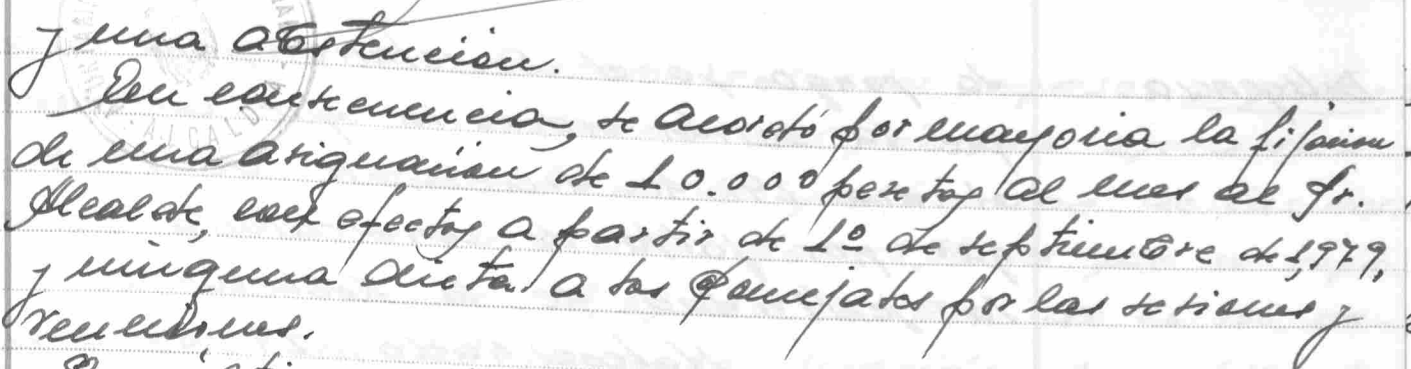 y una abstención.
En consecuencia, se acordó por mayoria la fijación
de una asignación de 10.000 pesetas al mes al Sr.
Alcalde, con efectos a partir de 1º de septiembre de 1,979,
y ninguna dieta a los Concejales por las sesiones y
reuniones.
ALCALD